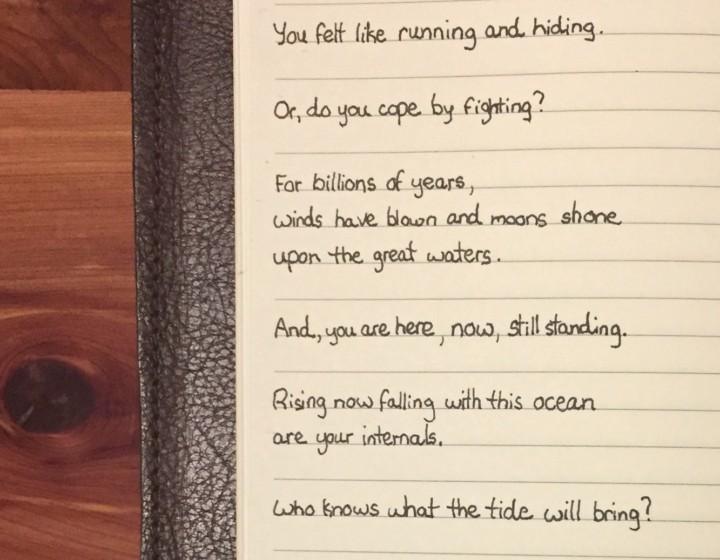 You felt like running and hiding.
Or, do you cope by fighting?
For billions of years,
winds have blown and moons shone
upon the great waters.
And, you are here, now, still standing.
Rising now falling with this ocean
are your internals.
Who knows what the tide will bring?